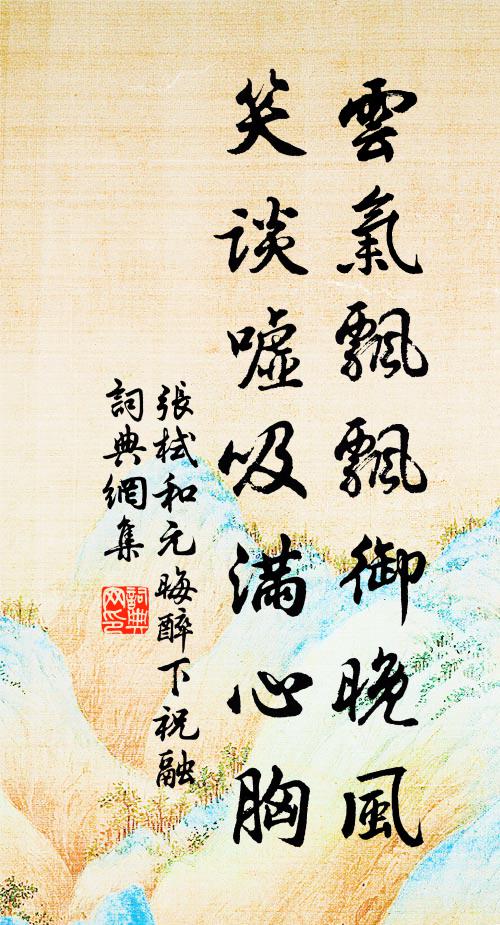 雲氣飄飄御晚風
笑談噓吸滿心胸
張栻和元晦醉下祝融
詞典網集
詞典
网印